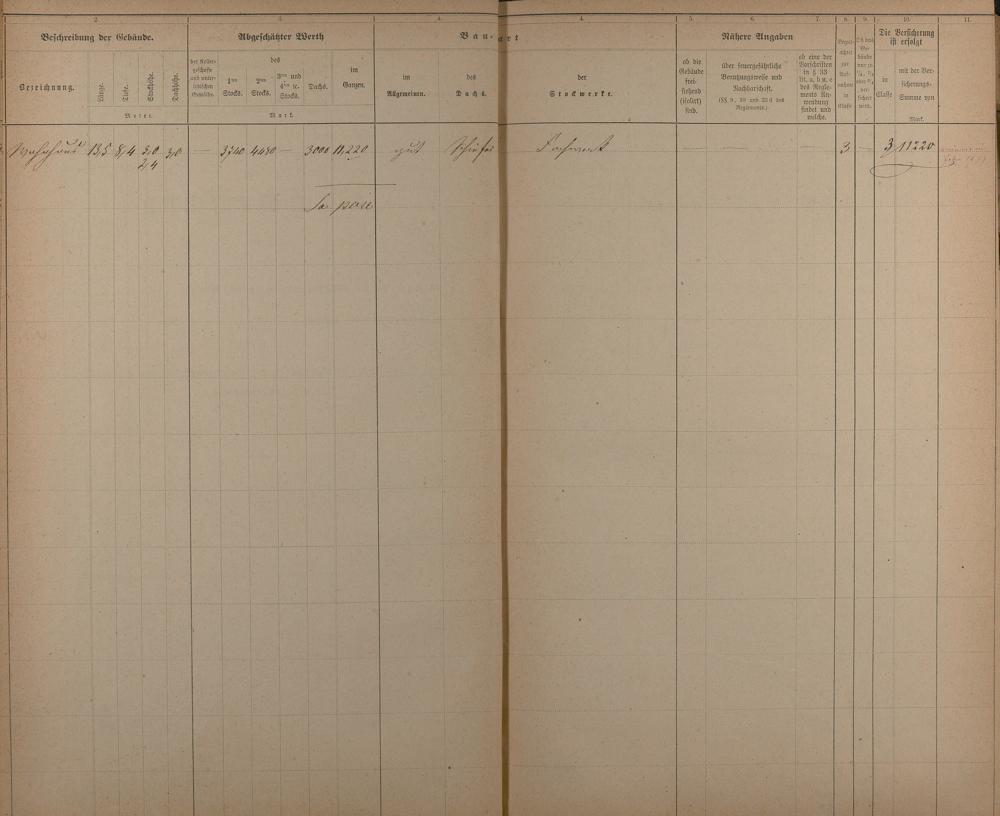 2. 3. 4. 4. 5. 6. 7. 8. 9. 10. 11.
Beschreibung der Gebäude. Abgeschätzter Werth Bau-art Nähere Angaben Die Versicherung ist erfolgt
Bezeichnung. Länge. Tiefe. Stockhöhe. Dachhöhe.
Meter.
der Keller-
geschosse
und unter-
irdischen
Gewölbe.
des
1ten
Stocks.
2ten
Stocks.
3ten und
4ten ic.
Stocks.
Dachs.
im
Ganzen.
Mark.
im
Allgemeinen.
des
Dachs.
der
Stockwerke.
ob die
Gebäude
frei-
stehend
(isolirt)
sind.
über feuergefährliche
Benutzungsweise und
Nachbarschaft.
(§§. 9, 10 und 23 d des
Reglements.)
ob eine der
Vorschriften
in § 33
lit. a, b u. c
des Regle-
ments An-
wendung
findet und
welche.
in
Classe
mit der Ver-
sicherungs-
Summe von
Mark.
Wohnhaus 13,5 8,4 3,0 3,0 — 3740 4480 — 3000 11,220 gut Schiefer Fachwerk — — — 3 — 3 11220
2,4